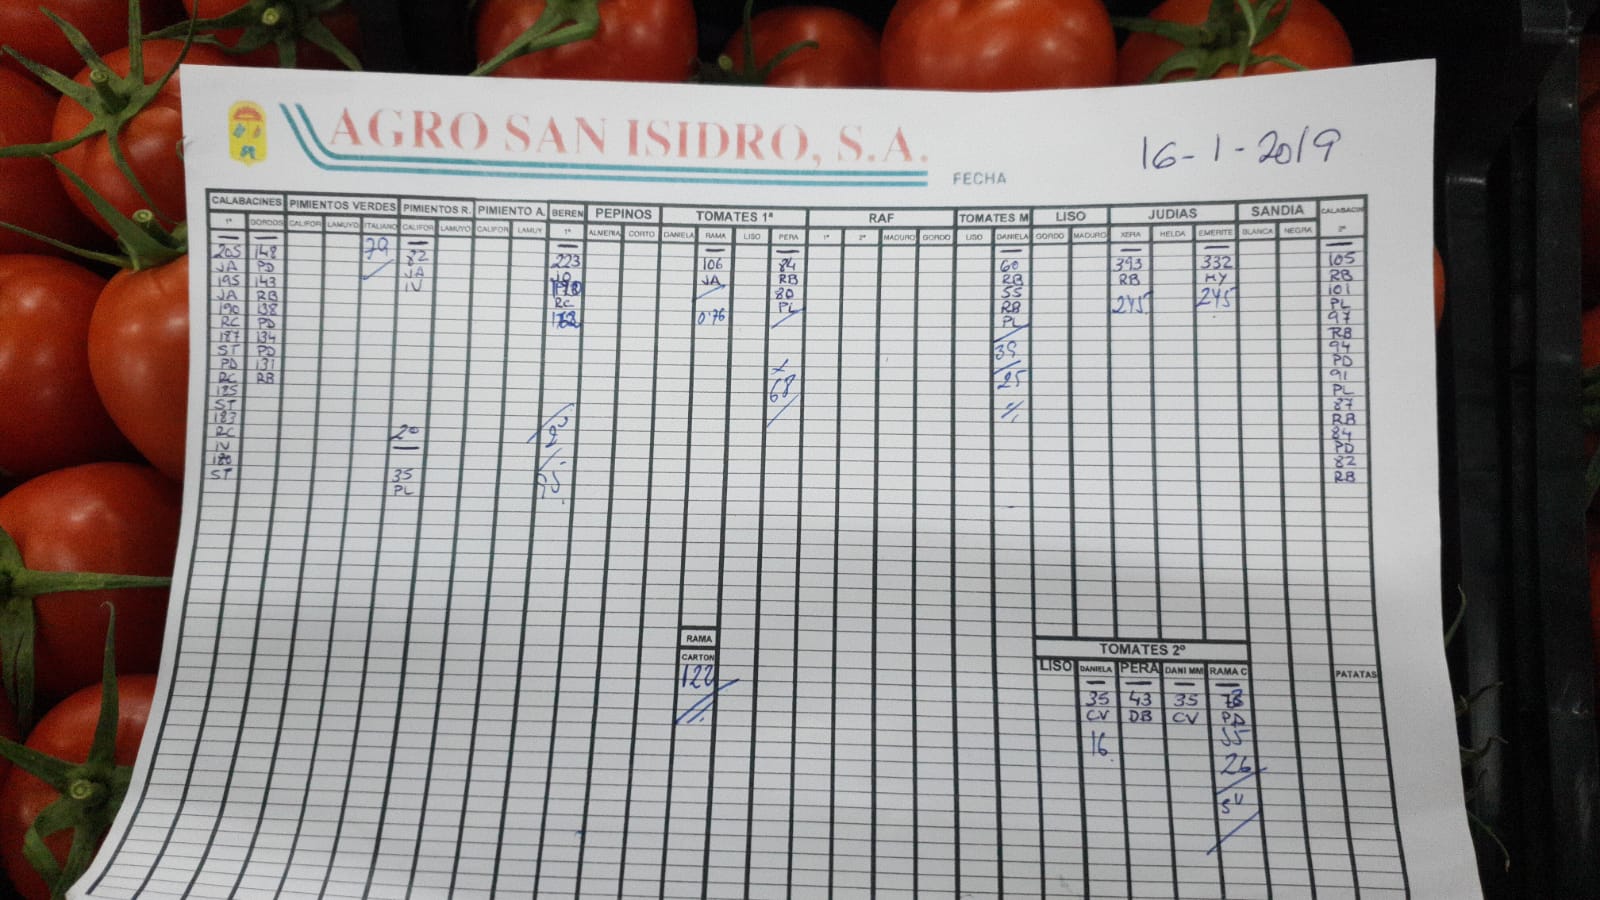 AGRO SAN ISIDRO, S.A.
FECHA 16-1-2019
CALABACINES PIMIENTOS VERDES PIMIENTOS R. PIMIENTO A. BEREN PEPINOS TOMATES 1ª RAF TOMATES M LISO JUDIAS SANDIA CALABACIN
1ª GORDOS CALIFOR LAMUYO ITALIANO CALIFOR LAMUYO CALIFOR LAMUY 1ª ALMERIA CORTO DANIELA RAMA LISO PERA 1ª 2ª MADURO GORDO LISO DANIELA GORDO MADURO XERA HELDA EMERITE BLANCA NEGRA 2ª
205 148 79 82 223 106 84 60 393 332 105
JA PD JA JA RB RB RB MY RB
195 143 IV 80 55 245 245 101
JA RB RC PL RB PL
190 138 0'76 PL 97
RC PD RB
187 134 39 94
ST PD PD
PD 131 25 91
RC RB 68 PL
185 87
ST RB
183 84
RC 2º PD
IV 82
180 RB
ST 35
PL
RAMA
CARTON
122
TOMATES 2º
LISO DANIELA PERA DANI MM RAMA C
PATATAS
35 43 35
CV DB CV PD
16 55
26